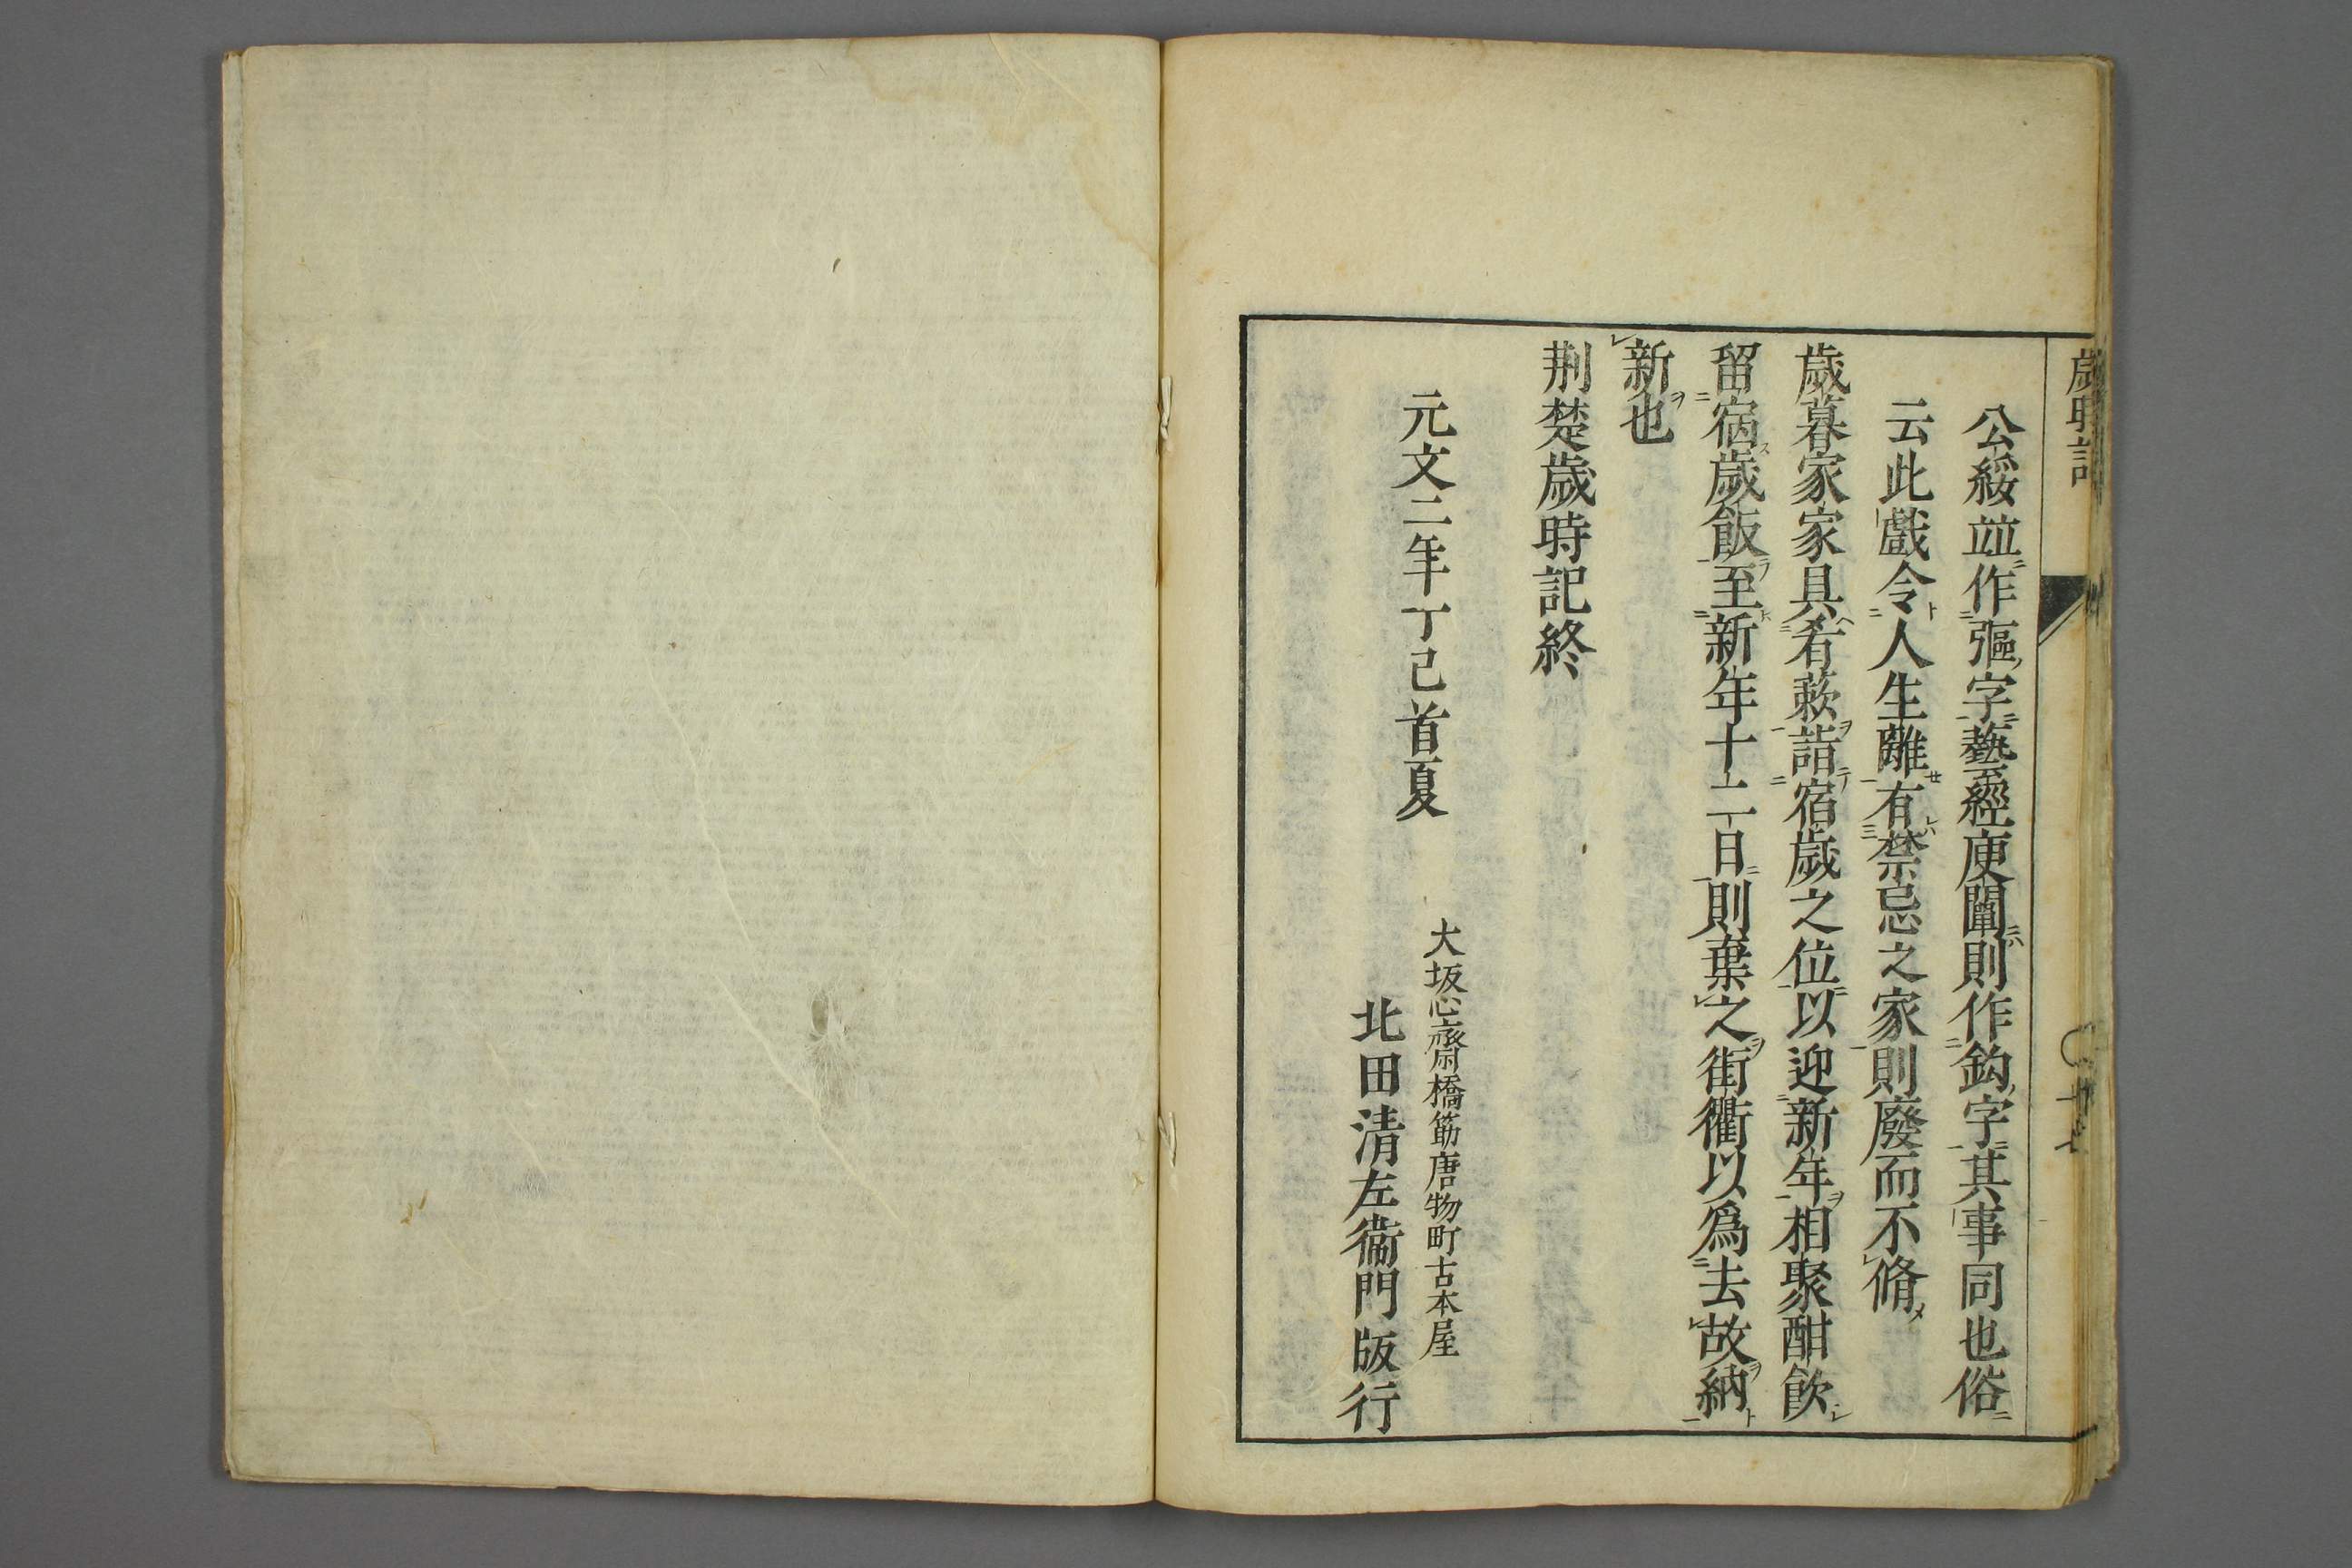 歲時記
公綏竝作彄字藝經庾闡則作鈎字其事同也俗
云此戲令人生離有禁忌之家則廢而不脩
歲暮家家具肴蔌詣宿歲之位以迎新年相聚酣飮
留宿歲飯至新年十二日則棄之街衢以爲去故納
新也
荆楚歲時記終
元文二年丁己首夏
大坂心齋橋筋唐物町古本屋
北田清左衞門版行